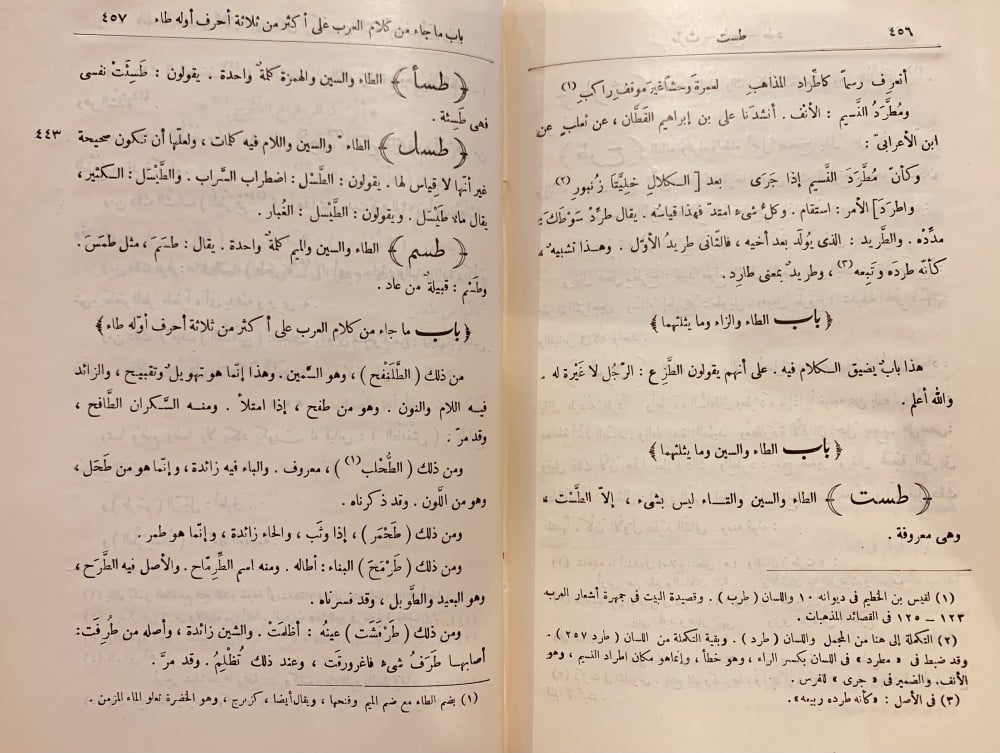 ٤٥٦ طست
أتعرِف رسماً كاطِّراد المذاهبِ لعمرةَ وحشاً غيرَ موقفِ راكبِ (١)
ومُطَّرَدُ النَّسيم : الأنْف . أنشدَنا على بن إبراهيم القَطَّان ، عن ثعلبٍ عن
ابن الأعرابىّ :
وكأنّ مُطَّرَدَ النَّسيم إذا جَرَى بعد [ السكلالِ خلِيَّتَا زُنبورِ (٢)
واطرَدَ ] الأمر : استقام . وكلُّ شىء امتدّ فهذا قياسُه . يقال طرِّدْ سَوْطَكَ :
مدِّدْه . والطَّريد : الذى يُولَد بعد أخيه ، فالثّانى طريدُ الأوّل . وهذا تشبيهٌ ،
كأنّه طرده وتَبِعه (٣) ، وطريدٌ بمعنى طارِد .
﴿ باب الطاء والزاء وما يثلثهما ﴾
هذا بابٌ يضيق الكلام فيه . على أنهم يقولون الطَّزِع : الرّجُل لا غَيْرة له .
والله أعلم .
﴿ باب الطاء والسين وما يثلثهما ﴾
﴿ طست ﴾ الطاء والسين والتاء ليس بشىء ، إلاّ الطَّسْت ،
وهى معروفة .
(١) لقيس بن الخطيم فى ديوانه ١٠ واللسان ( طرب ) . وقصيدة البيت فى جمهرة أشعار العرب
١٢٣ — ١٢٥ فى القصائد المذهبات .
(٢) التكملة إلى هنا من المجمل واللسان ( طرد ) . وبقية التكملة من اللسان ( طرد ٢٥٧ ) .
وقد ضبط فى « مطرد » فى اللسان بكسر الراء ، وهو خطأ ، وإنما هو مكان اطراد النسيم ، وهو
الأنف. والضمير فى « جرى » للفرس .
(٣) فى الأصل : «كأنه طرده ربيعه» .
باب ما جاء من كلام العرب على أكثر من ثلاثة أحرف أوله طاء ٤٥٧
﴿ طسأ ﴾ الطاء والسين والهمزة كلمةٌ واحدة . يقولون : طَسِئَتْ نفسى
فهى طَسِئة .
﴿ طسل ﴾ الطاء والسين واللام فيه كلمات ، ولعلّها أن تكون صحيحة ٤٤٣
غير أنّها لا قِياس لها . يقولون : الطَّسْل : اضطراب السَّراب . والطَّيْسَل : السكثير،
يقال ماء طَيْسَل . ويقولون : الطَّيْسَل : الغُبار .
﴿ طسم ﴾ الطاء والسين والميم كلمةٌ واحدة . يقال : طسَمَ ، مثل طمَسَ .
وطَسْم : قبيلةٌ من عاد .
﴿ باب ما جاء من كلام العرب على أكثر من ثلاثة أحرف أوّله طاء ﴾
من ذلك ( الطَّلَنْفَح ) ، وهو السَّمين . وهذا إنَّما هو تهويلٌ وتقبيح ، والزائد
فيه اللام والنون . وهو من طفح ، إذا امتلأ . ومنه السَّكران الطَّافح ،
وقد مرّ .
ومن ذلك ( الطُّحْلب (١) ) ، معروف . والباء فيه زائدة ، وإنّما هو من طَحَل ،
وهو من اللَّون . وقد ذكرناه .
ومن ذلك ( طَحْمَر ) ، إذا وثَب ، والحاء زائدة ، وإنّما هو طمر .
ومن ذلك ( طَرْمَحَ ) البناء : أطاله . ومنه اسم الطِّرِمّاح . والأصل فيه الطَّرَح ،
وهو البعيد والطَّويل ، وقد فسرناه .
ومن ذلك ( طَرْفَشَت ) عينُه : أظلمَتْ . والشين زائدة ، وأصله من طُرِفَت :
أصابها طَرَفُ شىء فاغرورقَت ، وعند ذلك تُظْلِمُ . وقد مرَّ .
(١) بضم الطاء مع ضم الميم وفتحها ، ويقال أيضا ، كزبرج ، وهو الخضرة تعلو الماء المزمن .